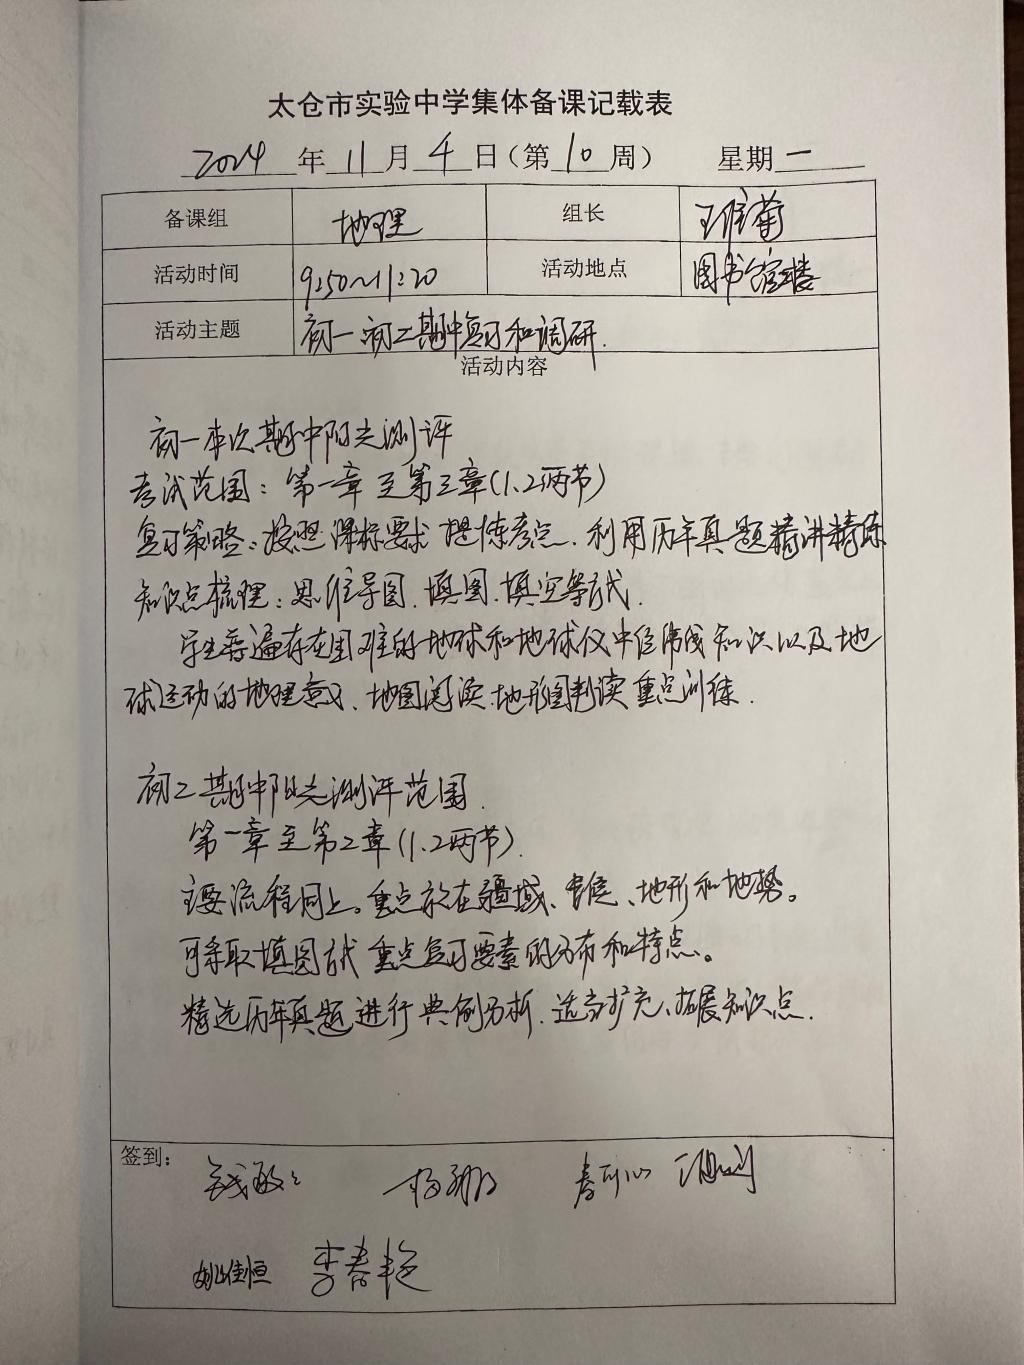 太仓市实验中学集体备课记载表
2024年11月4日(第10周) 星期一
备课组 地理 组长 王维菊
活动时间 9:50~11:20 活动地点 图书馆楼
活动主题 初一初二期中复习和调研.
活动内容
初一本次期中阳光测评
考试范围: 第一章至第三章(1.2两节)
复习策略: 按照课标要求 提炼考点. 利用历年真题精讲精练
知识点梳理: 思维导图. 填图. 填空等方式.
学生普遍存在困难的地球和地球仪中经纬线知识以及地
球运动的地理意义、地图阅读.地形图判读重点训练.
初二期中阳光测评范围.
第一章至第二章(1.2两节).
主要流程同上。重点放在疆域、气候、地形和地势。
可采取填图方式 重点复习要素的分布和特点。
精选历年真题进行典例分析. 适当扩充、拓展知识点.
签到:
钱敏
杨娜
姚佳恒 李春艳